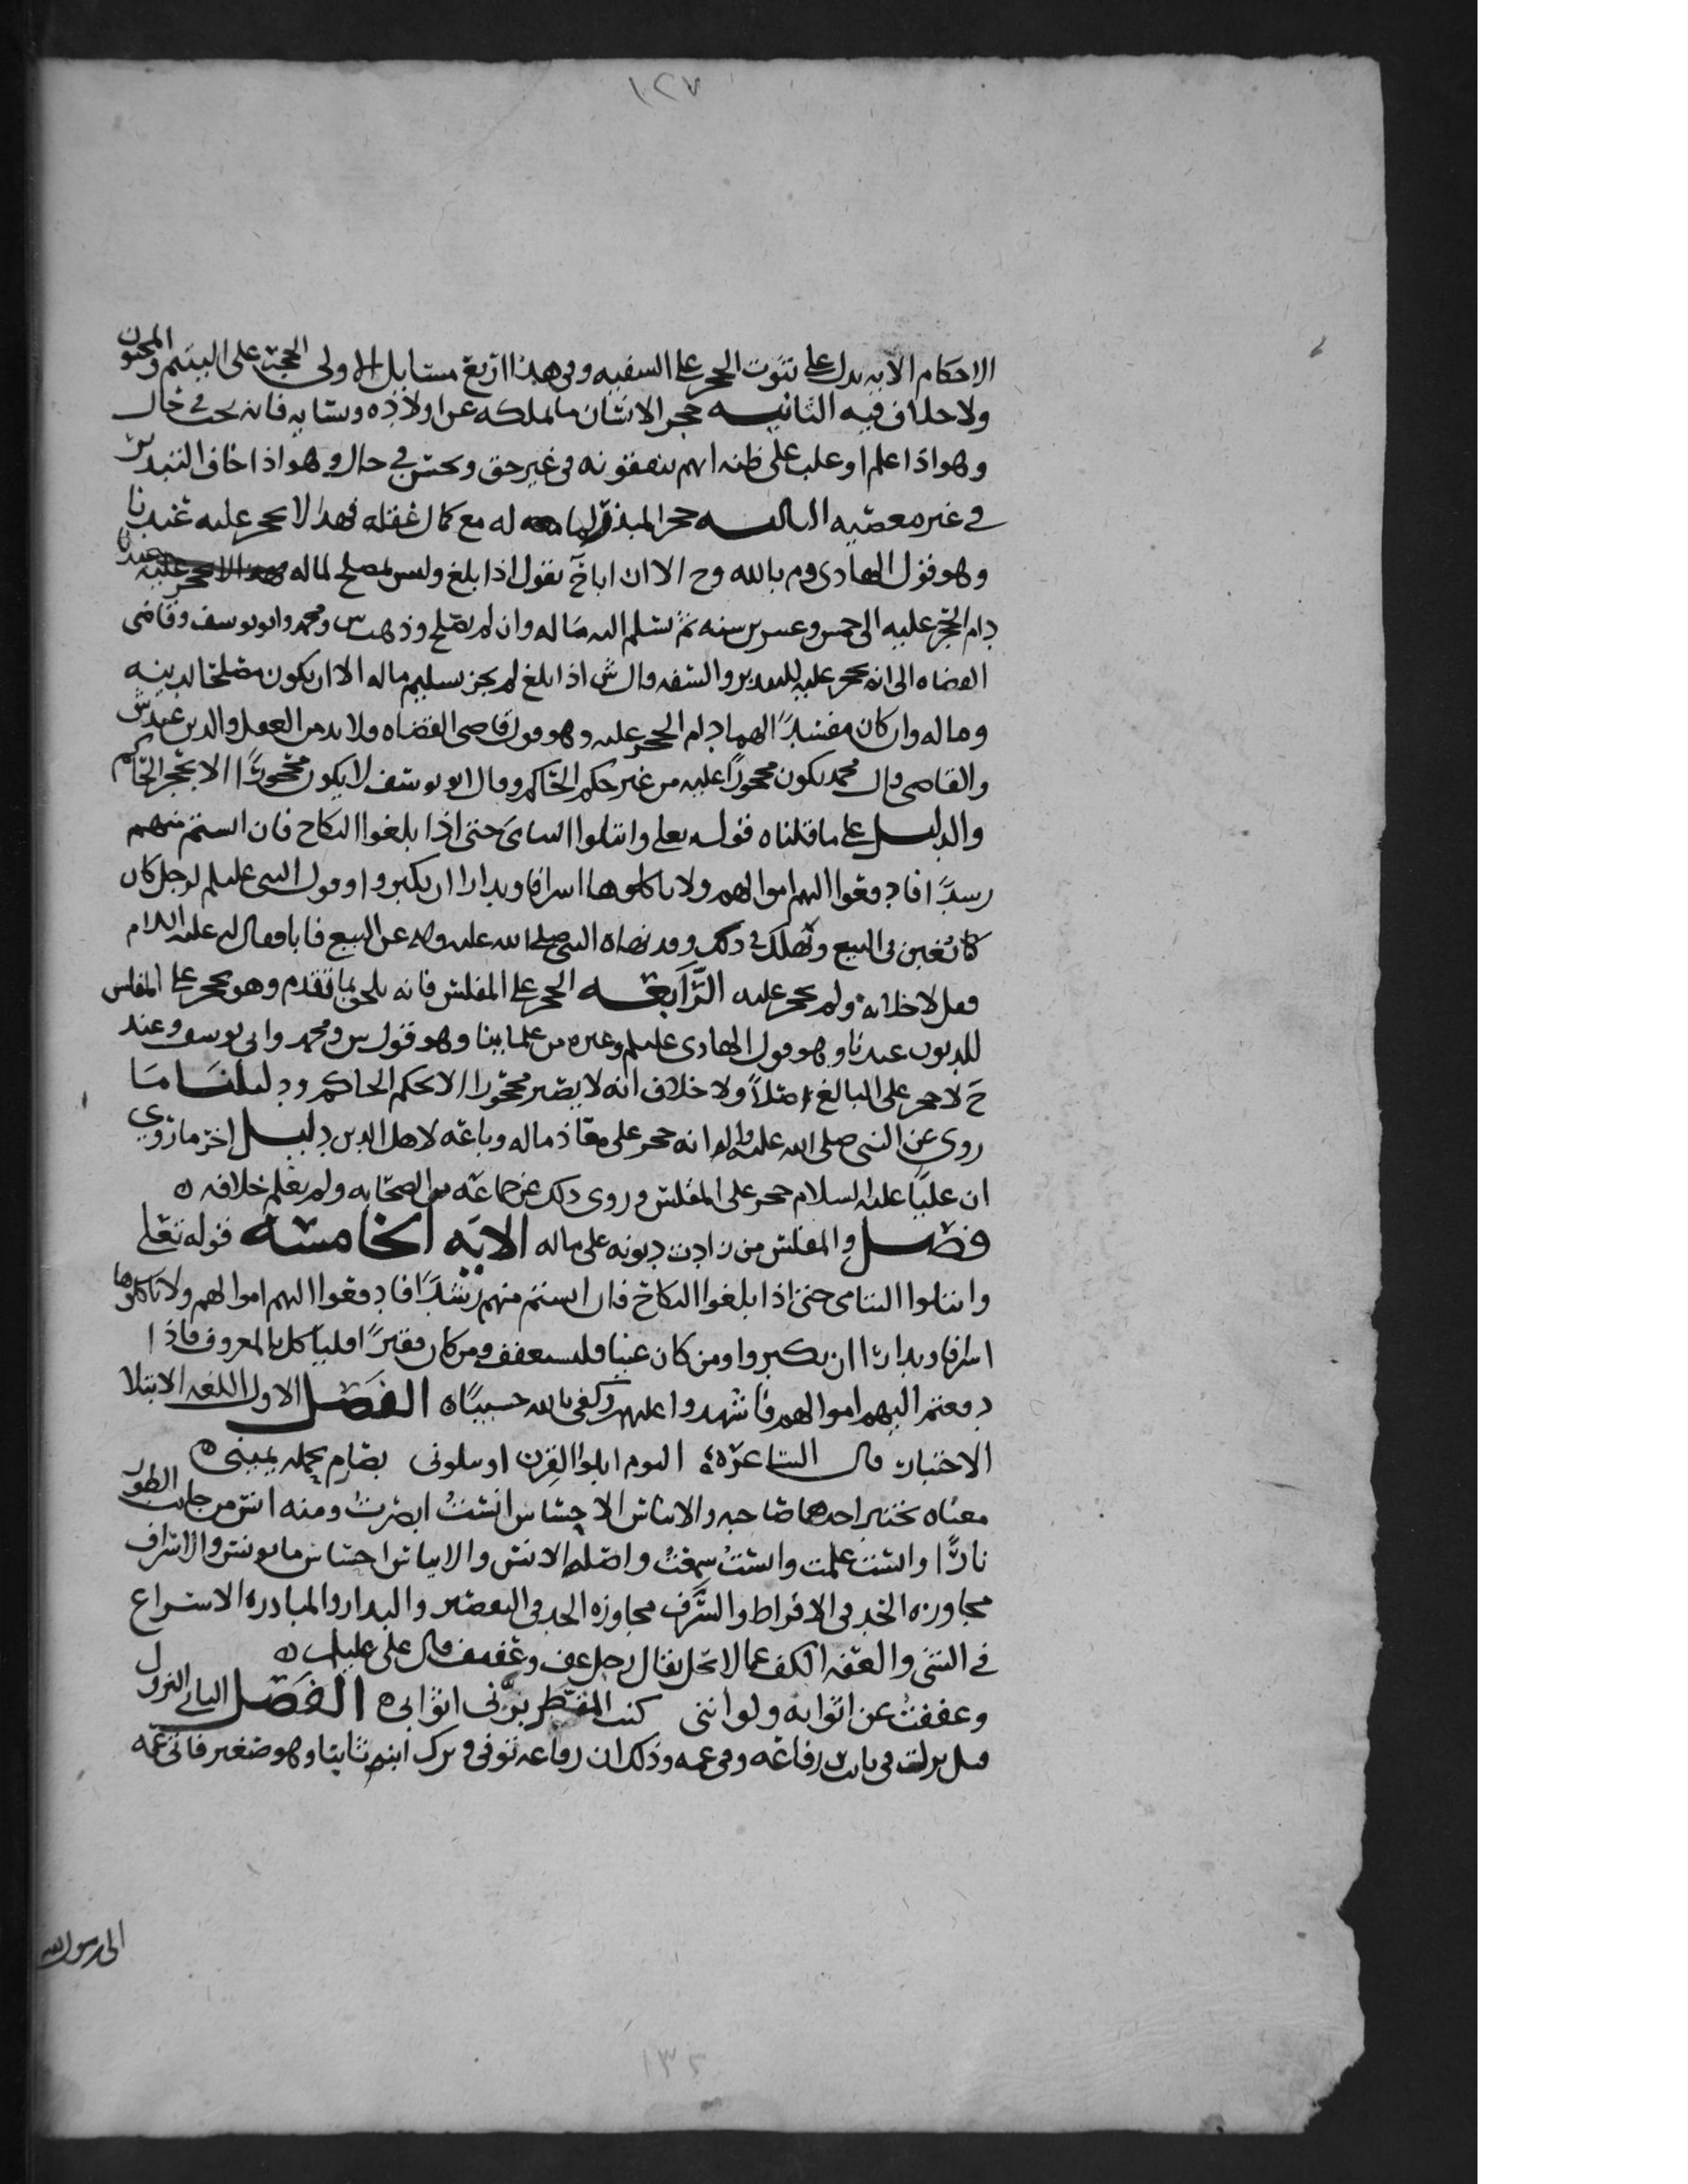 ١٢٧
الاحكام الآيه يدل على ثبوت الحجر على السفيه وفي هذا اربع مسايل الاولى الحجر على اليتيم والمجنون
ولا خلاف فيه الثانيه حجر الانسان ما يملكه عن اولاده ونسايه فانه يجب في حال
وهو اذا علم او غلب على ظنه انهم ينفقونه في غير حق ويحسن في حال وهو اذا خاف التبذير
في غير معصيه الثالثه حجر المبذر لماله مع كمال عقله فهذا لا يحجر عليه عندنا
وهو قول الهادي وم بالله وح الا ان اباح يقول اذا بلغ وليس بمصلح لماله
دام الحجر عليه الى خمس وعشرين سنه ثم يسلم اليه ماله وان لم يصلح وذهب س ومحمد وابو يوسف وقاضي
القضاه الى انه يحجر عليه للتبذير والسفه وقال ش اذا بلغ لم يجز تسليم ماله الا ان يكون مصلحا لدينه
وماله وان كان مفسداً لهما دام الحجر عليه وهو قول قاضي القضاه ولا بد من العقل والدين عند ش
والقاضي وقال محمد يكون محجوراً عليه من غير حكم الحاكم وقال ابو يوسف لا يكون محجوراً الا بحجر الحاكم
والدليل على ما قلناه قوله تعلى وابتلوا اليتامى حتى اذا بلغوا النكاح فان انستم منهم
رشداً فادفعوا اليهم اموالهم ولا تاكلوها اسرافا وبدارا ان يكبروا وقول النبي عليلم لرجل كان
كان يغبن في البيع ويهلك في ذلك وقد نهاه النبي صلى الله عليه واله عن البيع فابا فقال له عليه السلام
فقل لا خلابه ولم يحجر عليه الرابعه الحجر على المفلس فانه يلحق بما تقدم وهو يحجر على المفلس
للديون عندنا وهو قول الهادي عليلم وغيره من علماينا وهو قول س ومحمد وابي يوسف وعند
ح لا حجر على البالغ اصلاً ولا خلاف انه لا يصير محجورا الا بحكم الحاكم ودليلنا ما
روى عن النبي صلى الله عليه واله انه حجر على معاذ ماله وباعه لاهل الدين دليل اخر ما روي
ان علياً عليه السلام حجر على المفلس وروى ذلك عن جماعه من الصحابه ولم يعلم خلافه ه
فصل والمفلس من زادت ديونه على ماله الايه الخامسه قوله تعلى
وابتلوا اليتامى حتى اذا بلغوا النكاح فان انستم منهم رشداً فادفعوا اليهم اموالهم ولا تاكلوها
اسرافا وبدارا ان يكبروا ومن كان غنيا فليستعفف ومن كان فقيراً فلياكل بالمعروف فاذا
دفعتم اليهم اموالهم فاشهدوا عليهم وكفى بالله حسيباً ه الفصل الاول اللغه الابتلا
الاختبار قال الشاعر ه اليوم ابلوا القرن او يبلوني بصارم تحمله يميني ه
معناه يختبر احدهما صاحبه والايناس الاحساس انست ابصرت ومنه انس من جانب الطور
ناراً وانست علمت وانست سمعت واصله الانس والايناس احساس ما يونس والاسراف
مجاوزه الحد في الافراط والسرف مجاوزه الحد في التقصير والبدار والمبادره الاسراع
في الشي والعفه الكف عما لا يحل يقال رجل عف وعفيف قال علي عليلم ه
وعففت عن اثوابه ولو انني كنت المقطر بزني اثوابي ه الفصل الثاني النزول
قيل نزلت في ثابت بن رفاعه وفي عمه وذلك ان رفاعه توفي وترك ابنه ثابتا وهو صغير فاتى عمه
الى رسول الله
١٣٢